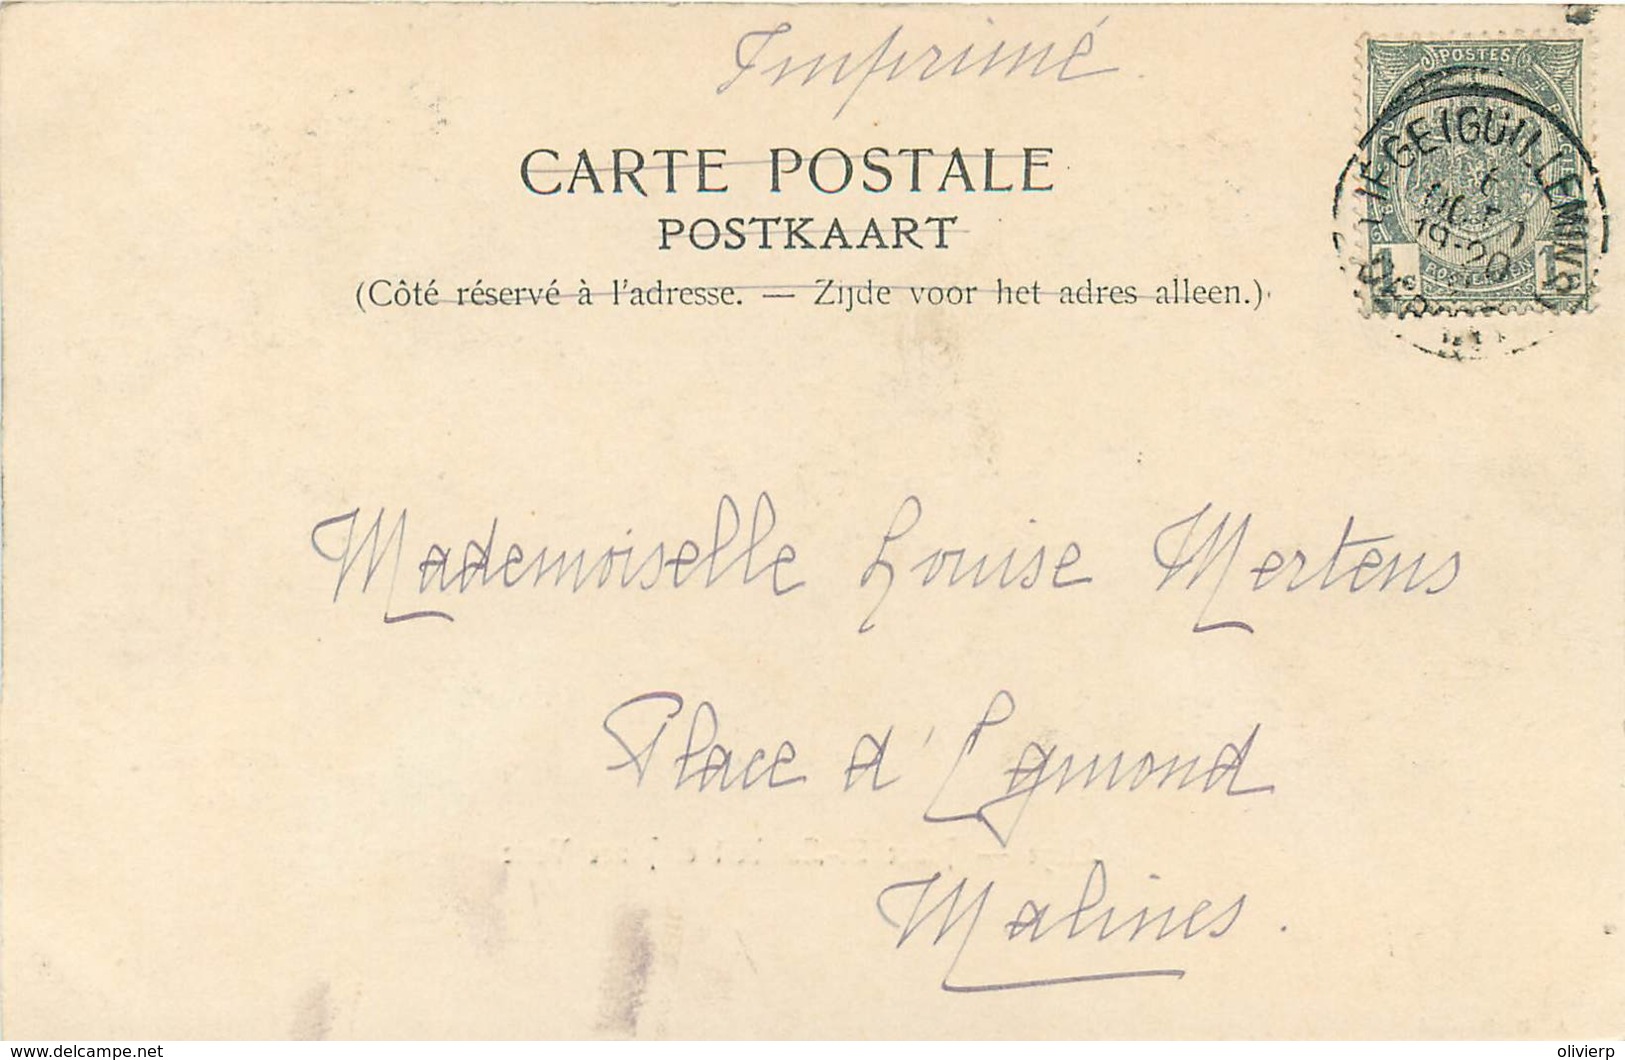 Imprimé.
CARTE POSTALE
POSTKAART
(Côté réservé à l'adresse. — Zijde voor het adres alleen.)
POSTES
1 POSTERIJEN 1
LIEGE (GUILLEMINS)
6
19-20
Mademoiselle Louise Mertens
Place d'Egmond
Malines.
www.delcampe.net
olivierp